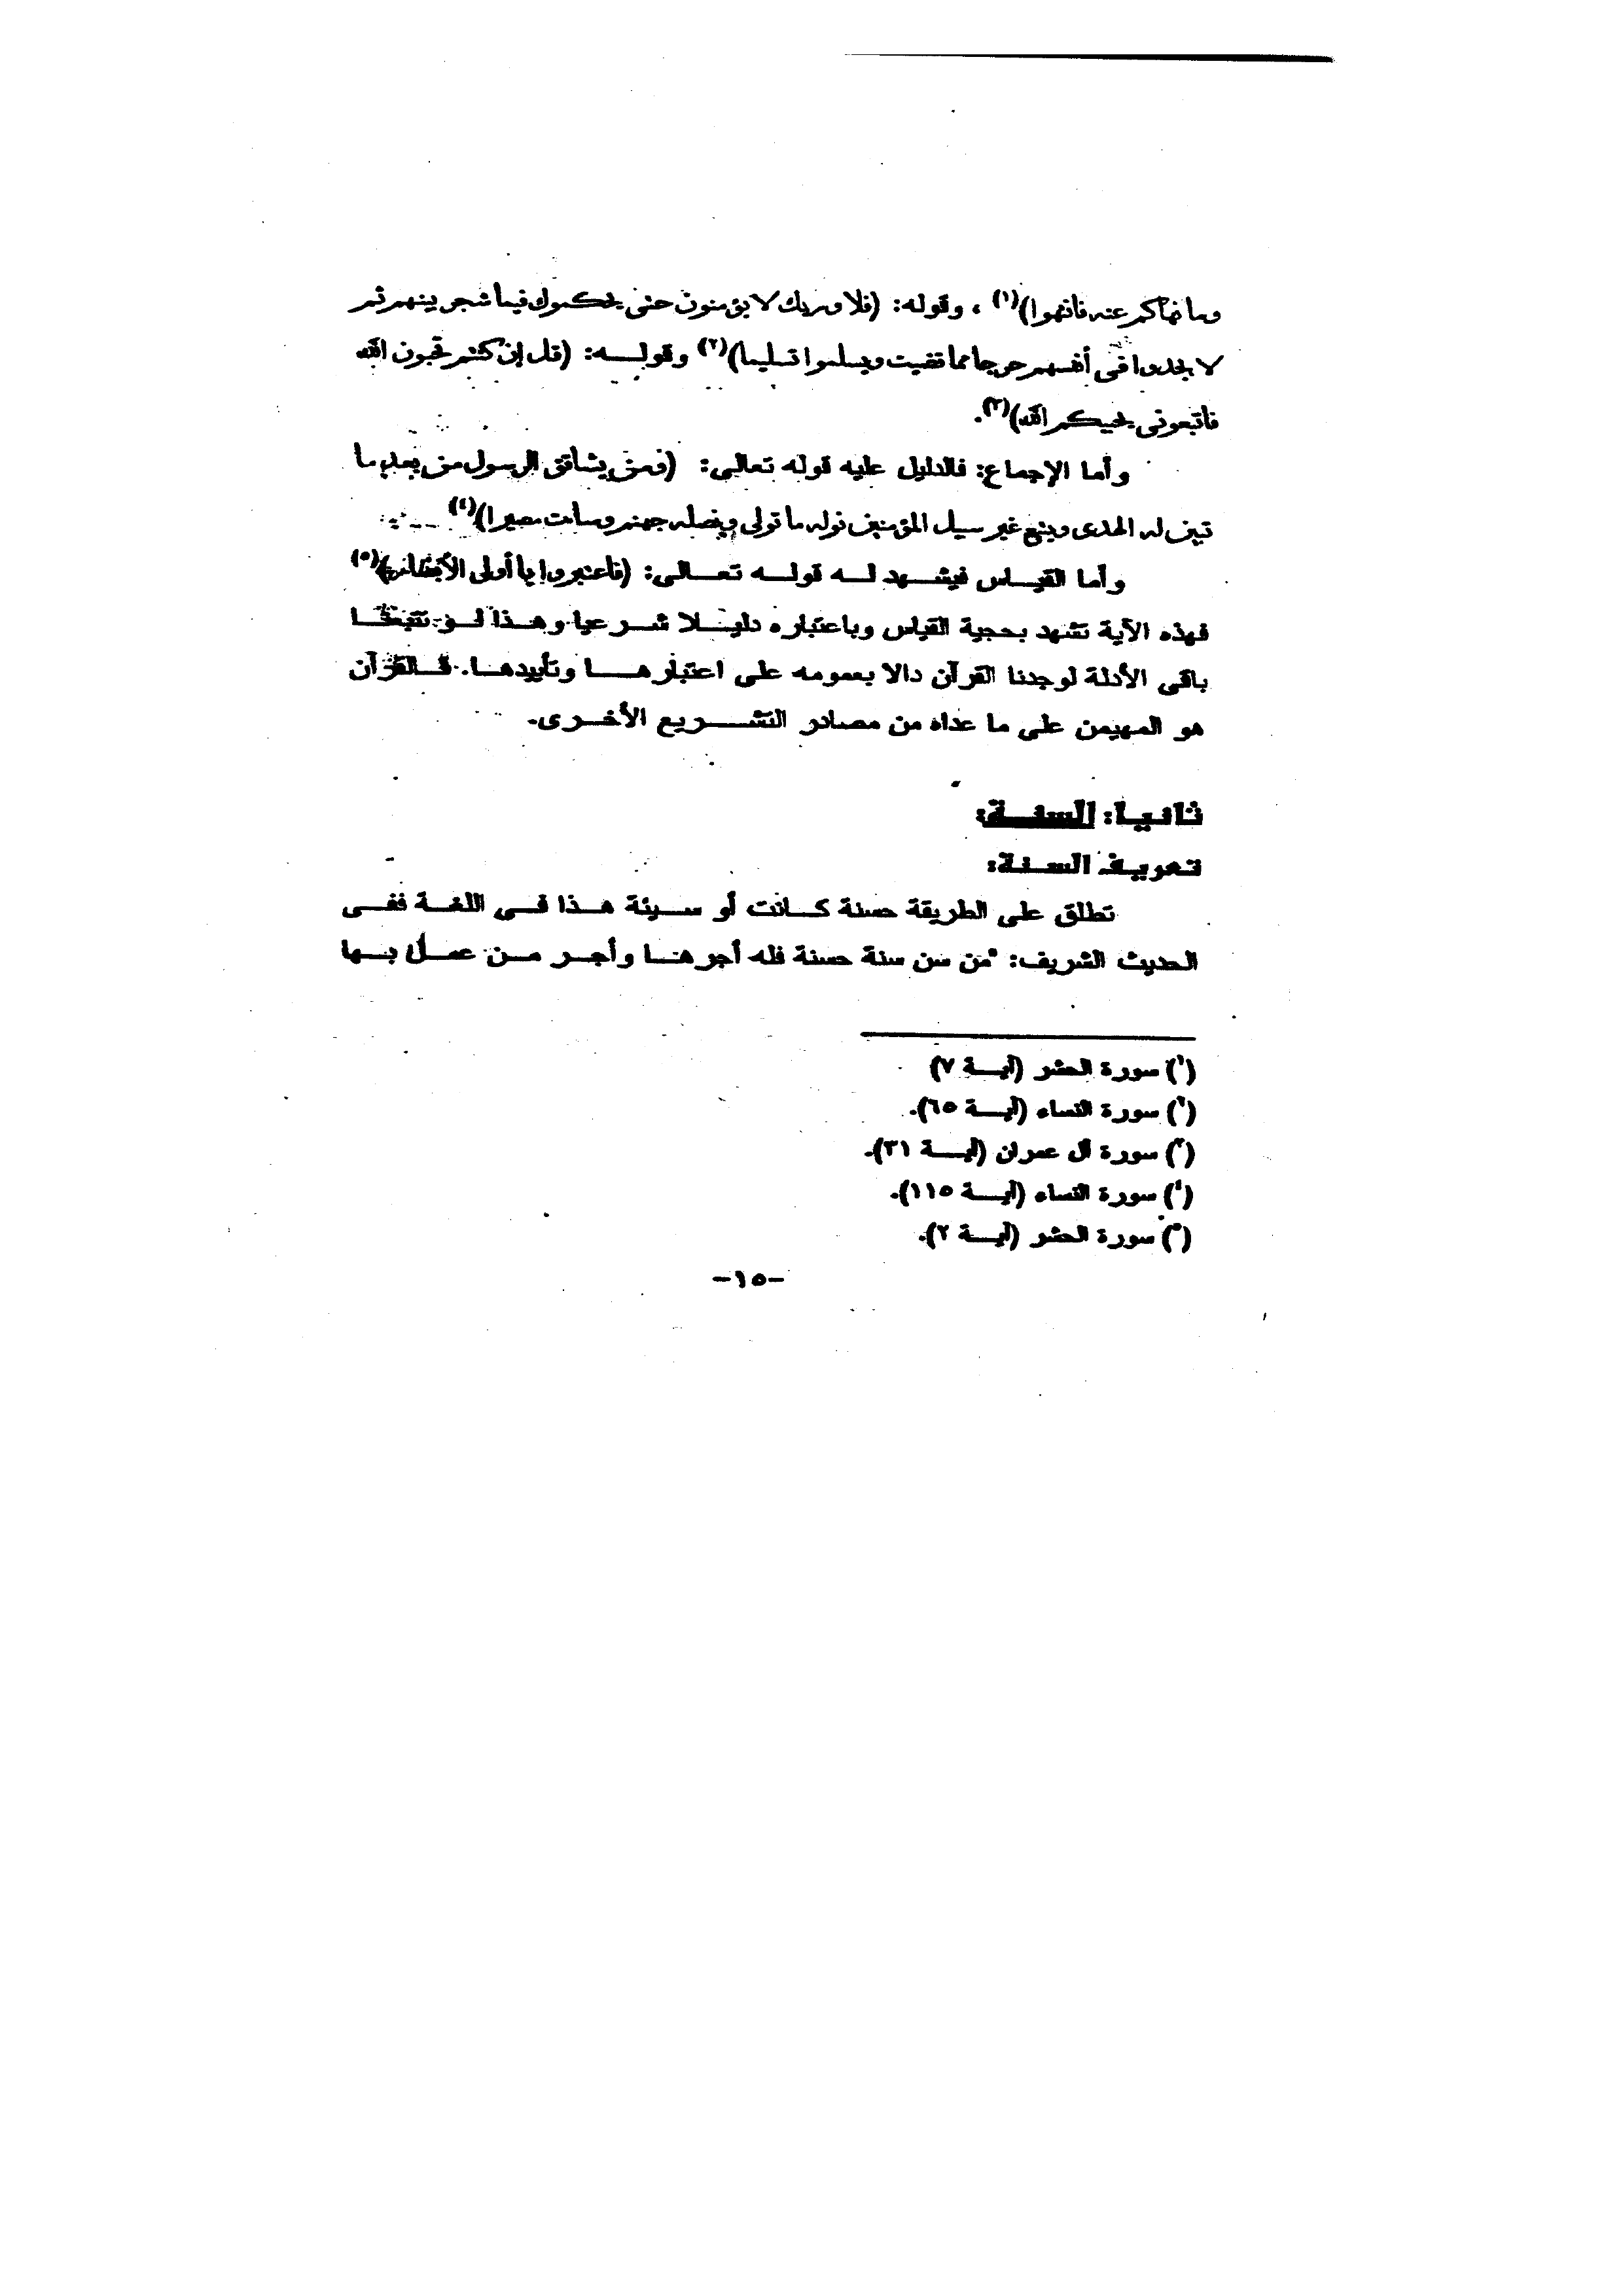 وما نهاكم عنه فانتهوا)(١) ، وقوله: (فلا وربك لا يؤمنون حتى يحكموك فيما شجر بينهم ثم
لا يجدوا فى أنفسهم حرجا مما قضيت ويسلموا تسليما)(٢) وقولـــه: (قل إن كنتم تحبون الله
فاتبعونى يحببكم الله)(٣).
وأما الإجماع: فالدليل عليه قوله تعالى: (فمن يشاقق الرسول من بعد ما
تبين له الهدى ويتبع غير سبيل المؤمنين نوله ما تولى ونصله جهنم وساءت مصيرا)(٤)
وأما القيــاس فيشــهد لــه قولــه تعــالى: (فاعتبروا يا أولى الأبصار)(٥)
فهذه الآية تشهد بحجية القياس وباعتباره دليــلا شــرعيا وهــذا لــو تتبعنــا
باقى الأدلة لوجدنا القرآن دالا بعمومه على اعتبارهــــا وتأييدهــا. فــالقرآن
هو المهيمن على ما عداه من مصادر التشـــريع الأخــرى.
ثانيــا: السنــة:
تعريف السنة:
تطلق على الطريقة حسنة كــانت أو ســيئة هــذا فــى اللغــة ففــى
الحديث الشريف: "من سن سنة حسنة فله أجرهــا وأجــر مــن عمــل بــها
(١) سورة الحشر (آيـــة ٧)
(٢) سورة النساء (آيـــة ٦٥).
(٣) سورة آل عمران (آيـــة ٣١).
(٤) سورة النساء (آيـــة ١١٥).
(٥) سورة الحشر (آيـــة ٢).
-١٥-